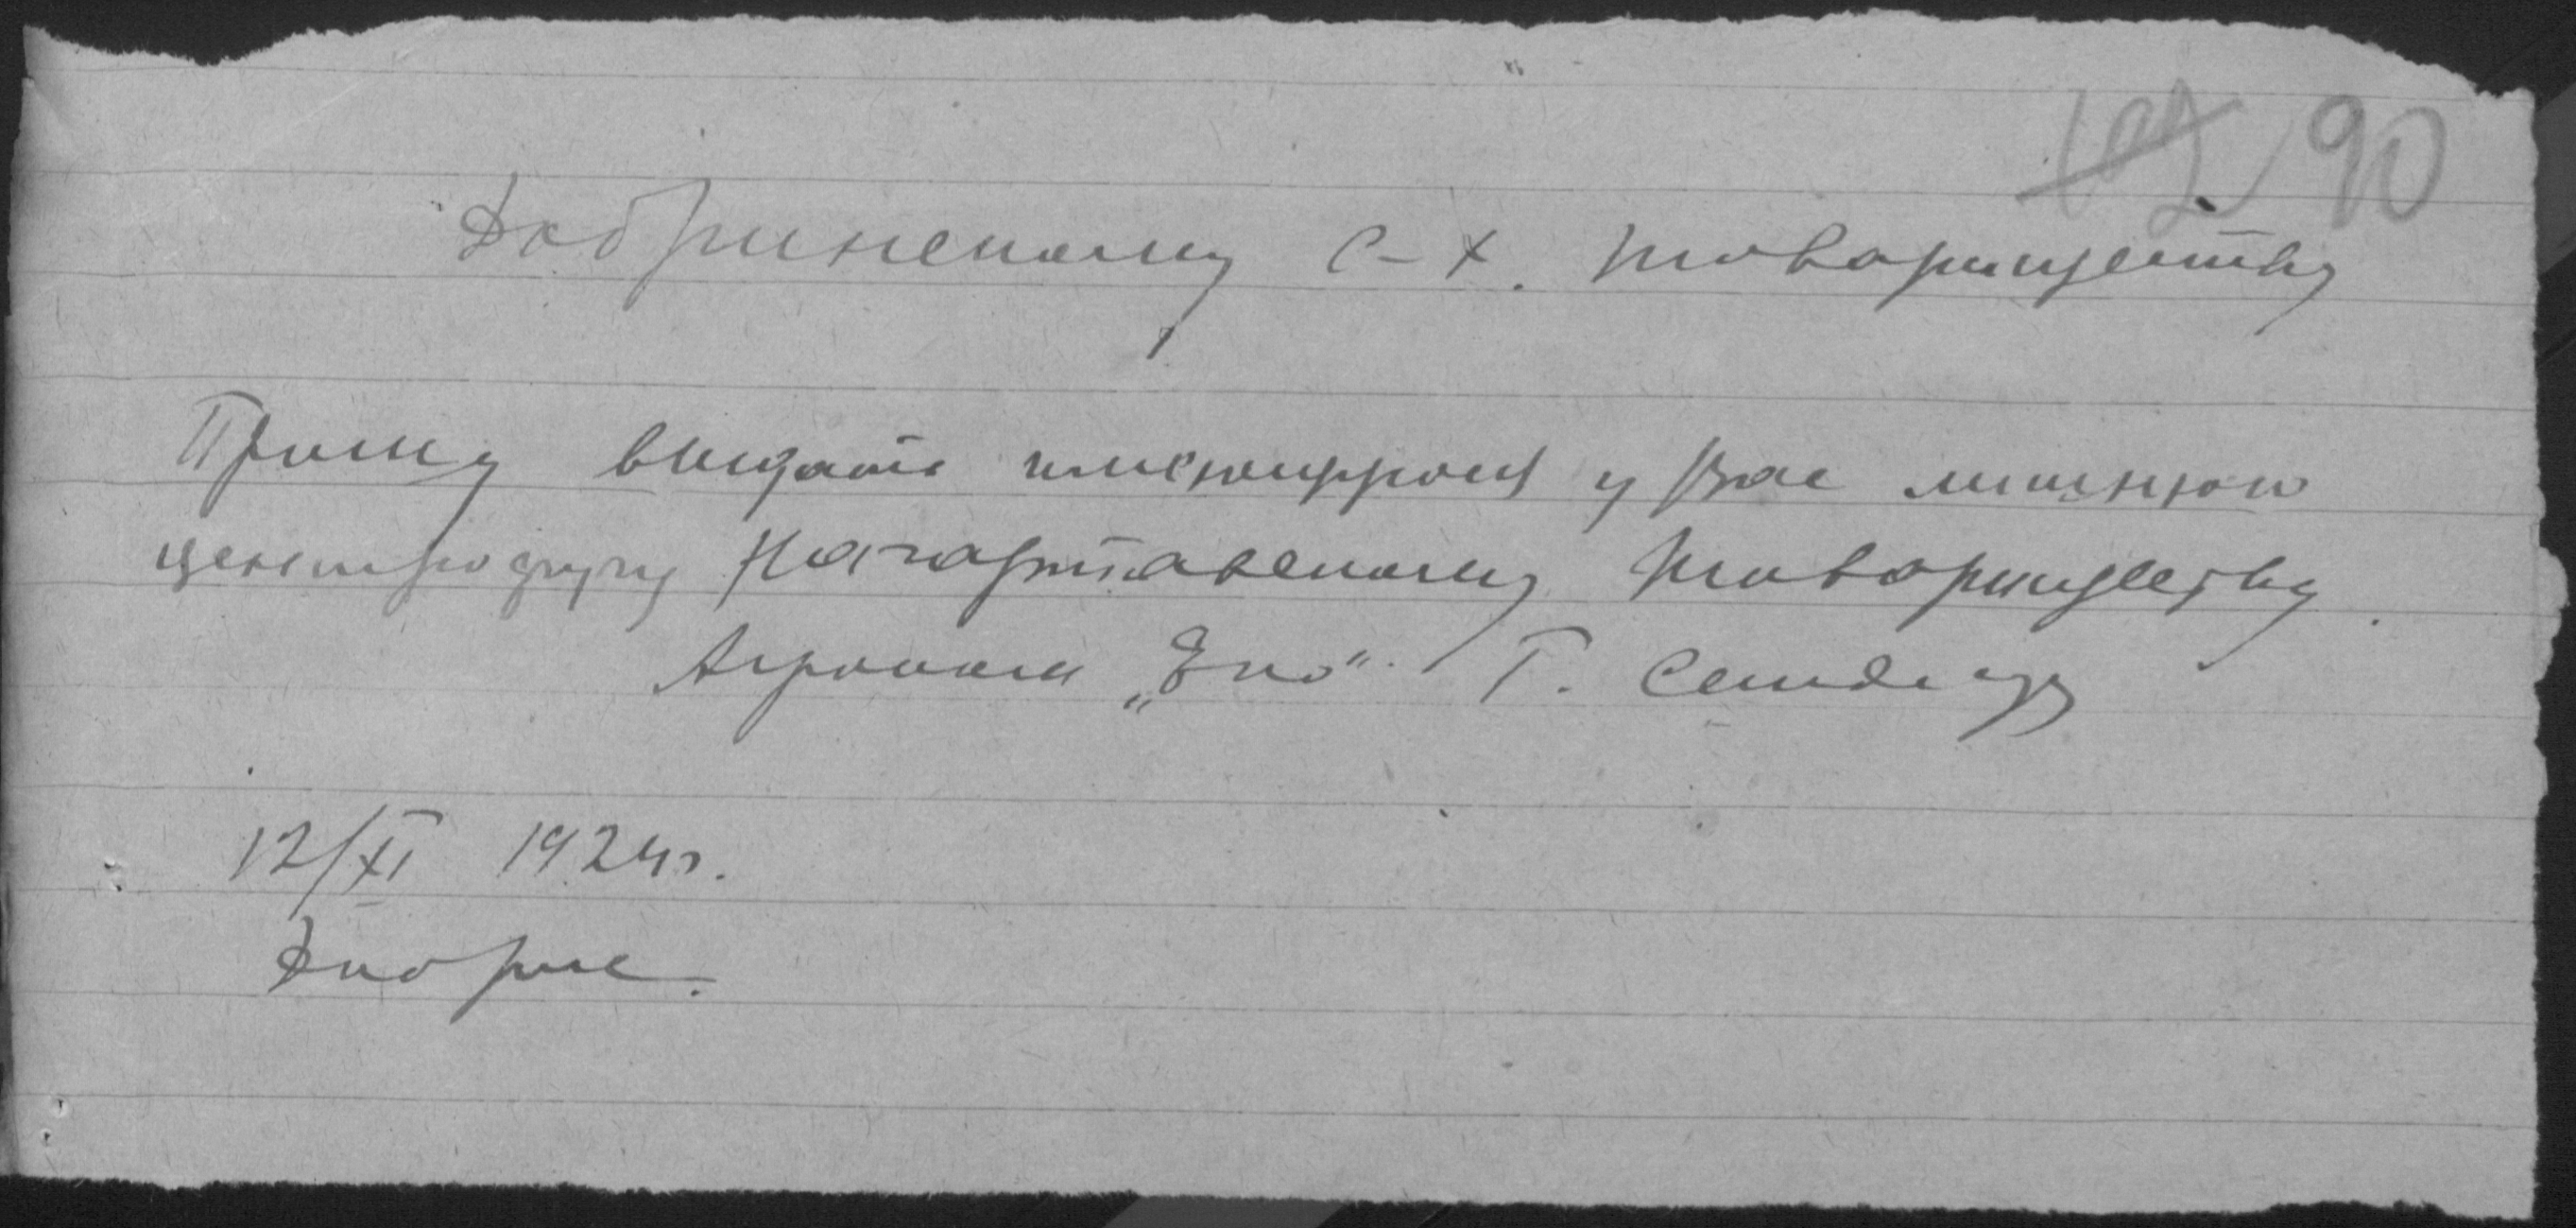 102 90
Добринскому с-х. товариществу
Прошу выдать имеющуюся у Вас лишнюю
центрофугу Нагартавскому товариществу.
Агроном „Еко“. Г.
12/XI 1924 г.
Добрие.